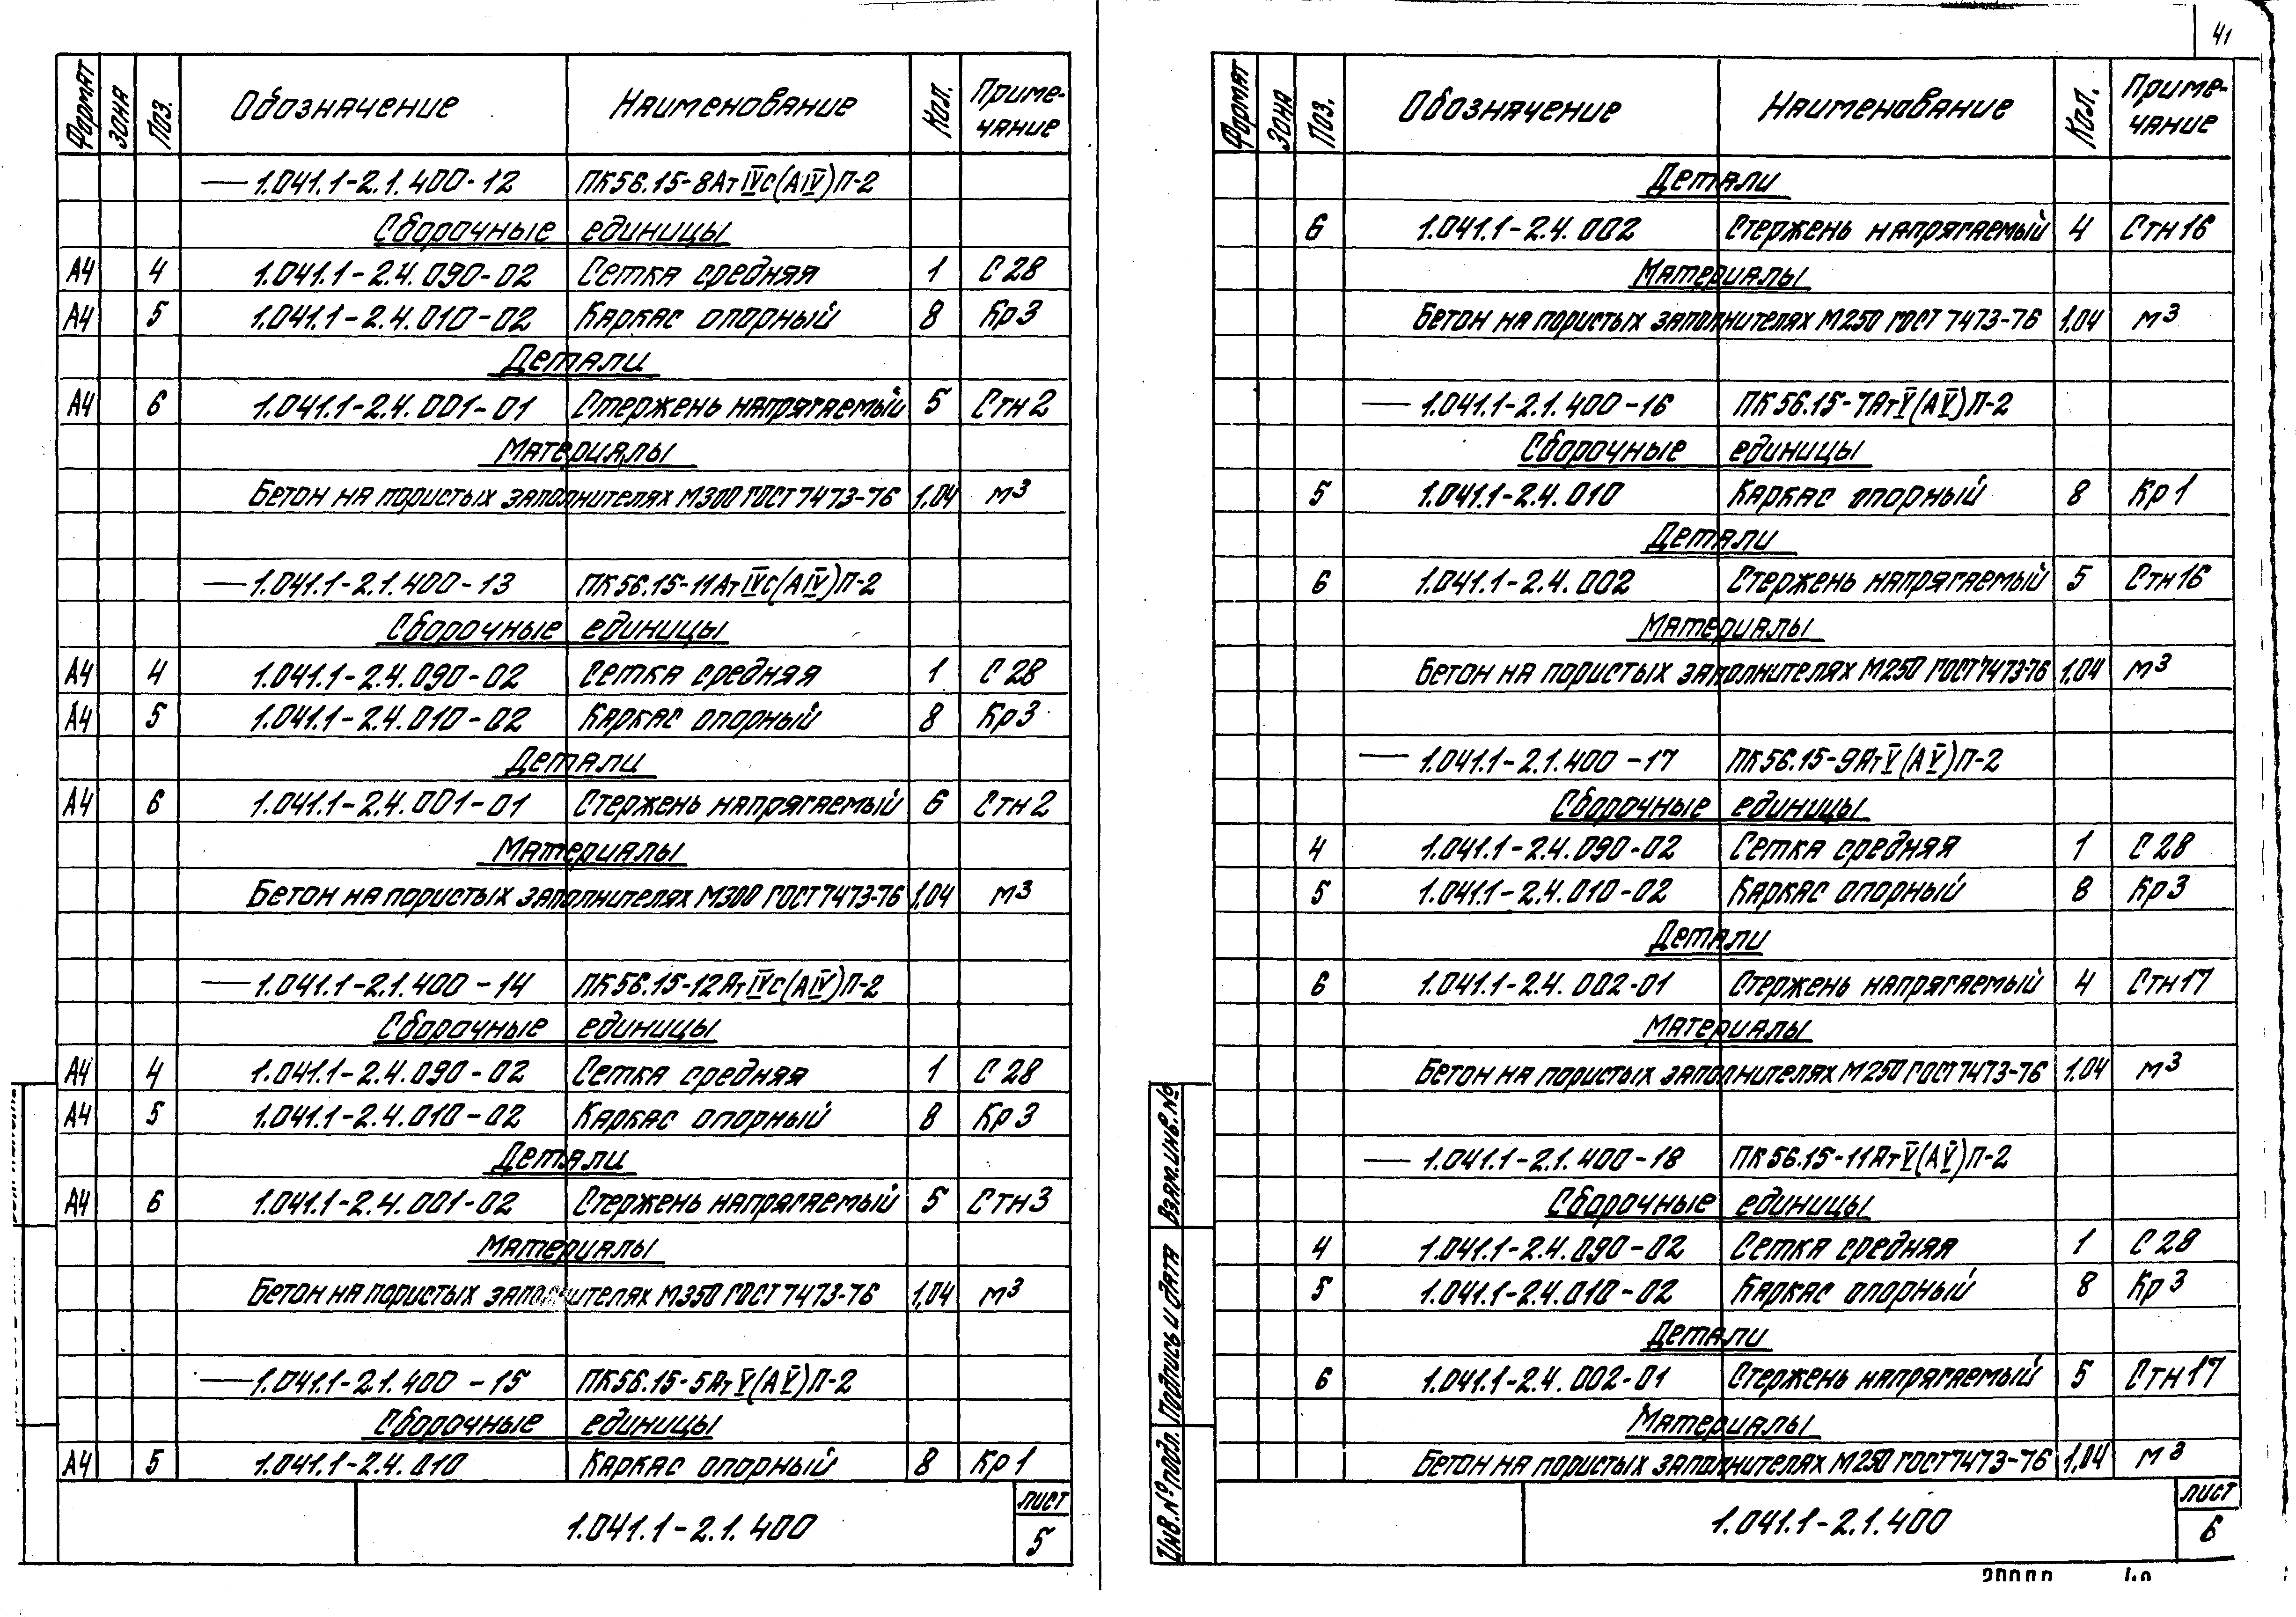 41
Формат Зона Поз. Обозначение Наименование Кол. Приме-
чание
— 1.041.1-2.1.400-12 ПК56.15-8АтIVС(АIV)П-2
Сборочные единицы
А4 4 1.041.1-2.4.090-02 Сетка средняя 1 С28
А4 5 1.041.1-2.4.010-02 Каркас опорный 8 Кр3
Детали
А4 6 1.041.1-2.4.001-01 Стержень напрягаемый 5 Стн2
Материалы
Бетон на пористых заполнителях М300 ГОСТ 7473-76 1,04 м3
— 1.041.1-2.1.400-13 ПК56.15-11АтIVС(АIV)П-2
Сборочные единицы
А4 4 1.041.1-2.4.090-02 Сетка средняя 1 С28
А4 5 1.041.1-2.4.010-02 Каркас опорный 8 Кр3
Детали
А4 6 1.041.1-2.4.001-01 Стержень напрягаемый 6 Стн2
Материалы
Бетон на пористых заполнителях М300 ГОСТ 7473-76 1,04 м3
— 1.041.1-2.1.400-14 ПК56.15-12АтIVС(АIV)П-2
Сборочные единицы
А4 4 1.041.1-2.4.090-02 Сетка средняя 1 С28
А4 5 1.041.1-2.4.010-02 Каркас опорный 8 Кр3
Детали
А4 6 1.041.1-2.4.001-02 Стержень напрягаемый 5 Стн3
Материалы
Бетон на пористых заполнителях М350 ГОСТ 7473-76 1,04 м3
— 1.041.1-2.1.400-15 ПК56.15-5АтV(АV)П-2
Сборочные единицы
А4 5 1.041.1-2.4.010 Каркас опорный 8 Кр1
1.041.1-2.1.400
лист
5
Формат Зона Поз. Обозначение Наименование Кол. Приме-
чание
Детали
6 1.041.1-2.4.002 Стержень напрягаемый 4 Стн16
Материалы
Бетон на пористых заполнителях М250 ГОСТ 7473-76 1,04 м3
— 1.041.1-2.1.400-16 ПК56.15-7АтV(АV)П-2
Сборочные единицы
5 1.041.1-2.4.010 Каркас опорный 8 Кр1
Детали
6 1.041.1-2.4.002 Стержень напрягаемый 5 Стн16
Материалы
Бетон на пористых заполнителях М250 ГОСТ 7473-76 1,04 м3
— 1.041.1-2.1.400-17 ПК56.15-9АтV(АV)П-2
Сборочные единицы
4 1.041.1-2.4.090-02 Сетка средняя 1 С28
5 1.041.1-2.4.010-02 Каркас опорный 8 Кр3
Детали
6 1.041.1-2.4.002-01 Стержень напрягаемый 4 Стн17
Материалы
Бетон на пористых заполнителях М250 ГОСТ 7473-76 1,04 м3
— 1.041.1-2.1.400-18 ПК56.15-11АтV(АV)П-2
Сборочные единицы
4 1.041.1-2.4.090-02 Сетка средняя 1 С28
5 1.041.1-2.4.010-02 Каркас опорный 8 Кр3
Детали
6 1.041.1-2.4.002-01 Стержень напрягаемый 5 Стн17
Материалы
Бетон на пористых заполнителях М250 ГОСТ 7473-76 1,04 м3
Инв.№ подл. Подпись и дата Взам.инв.№
1.041.1-2.1.400
лист
6